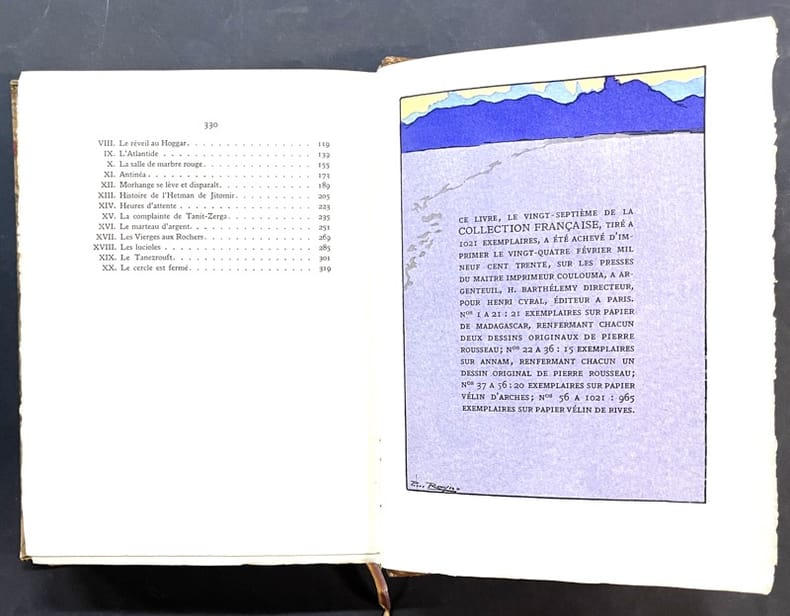 330
VIII. Le réveil au Hoggar. . . . . . . . . . . . . . . . 119
IX. L'Atlantide . . . . . . . . . . . . . . . . 139
X. La salle de marbre rouge. . . . . . . . . . . . . . 155
XI. Antinéa . . . . . . . . . . . . . . . . . 171
XII. Morhange se lève et disparaît. . . . . . . . . . . . 189
XIII. Histoire de l'Hetman de Jitomir . . . . . . . . . . 205
XIV. Heures d'attente . . . . . . . . . . . . . . . 223
XV. La complainte de Tanit-Zerga . . . . . . . . . . . 235
XVI. Le marteau d'argent. . . . . . . . . . . . . . . 251
XVII. Les Vierges aux Rochers. . . . . . . . . . . . . 269
XVIII. Les lucioles . . . . . . . . . . . . . . . . 285
XIX. Le Tanezrouft . . . . . . . . . . . . . . . 301
XX. Le cercle est fermé. . . . . . . . . . . . . . . 319
CE LIVRE, LE VINGT-SEPTIÈME DE LA
COLLECTION FRANÇAISE, TIRÉ A
1021 EXEMPLAIRES, A ÉTÉ ACHEVÉ D'IM-
PRIMER LE VINGT-QUATRE FÉVRIER MIL
NEUF CENT TRENTE, SUR LES PRESSES
DU MAITRE IMPRIMEUR COULOUMA, A AR-
GENTEUIL, H. BARTHÉLEMY DIRECTEUR,
POUR HENRI CYRAL, ÉDITEUR A PARIS.
Nos 1 A 21 : 21 EXEMPLAIRES SUR PAPIER
DE MADAGASCAR, RENFERMANT CHACUN
DEUX DESSINS ORIGINAUX DE PIERRE
ROUSSEAU; Nos 22 A 36 : 15 EXEMPLAIRES
SUR ANNAM, RENFERMANT CHACUN UN
DESSIN ORIGINAL DE PIERRE ROUSSEAU;
Nos 37 A 56 : 20 EXEMPLAIRES SUR PAPIER
VÉLIN D'ARCHES; Nos 56 A 1021 : 965
EXEMPLAIRES SUR PAPIER VÉLIN DE RIVES.